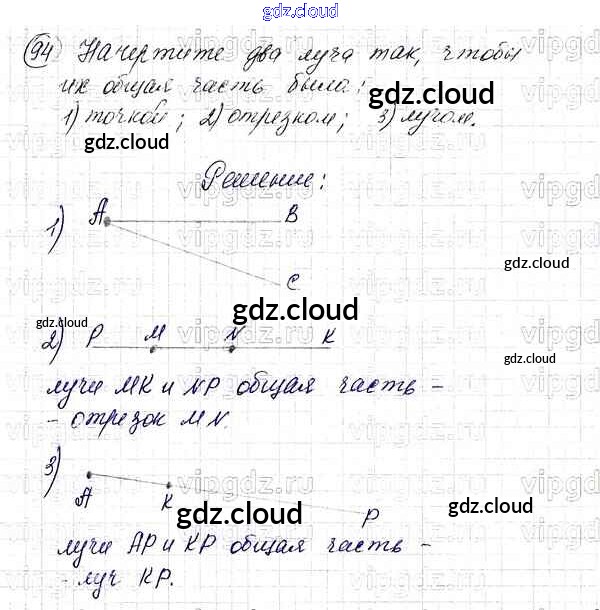 gdz.cloud
94 Начертите два луча так, чтобы
их общая часть была:
gdz.cloud
1) точкой; 2) отрезком; 3) лучом.
gdz.cloud
Решение:
1) A B
C
gdz.cloud
gdz.cloud
gdz.cloud
2) P M N K
gdz.cloud
лучи MK и NP общая часть -
- отрезок MN.
3)
A K P
gdz.cloud
gdz.cloud
лучи AP и KP общая часть -
- луч KP.
gdz.cloud